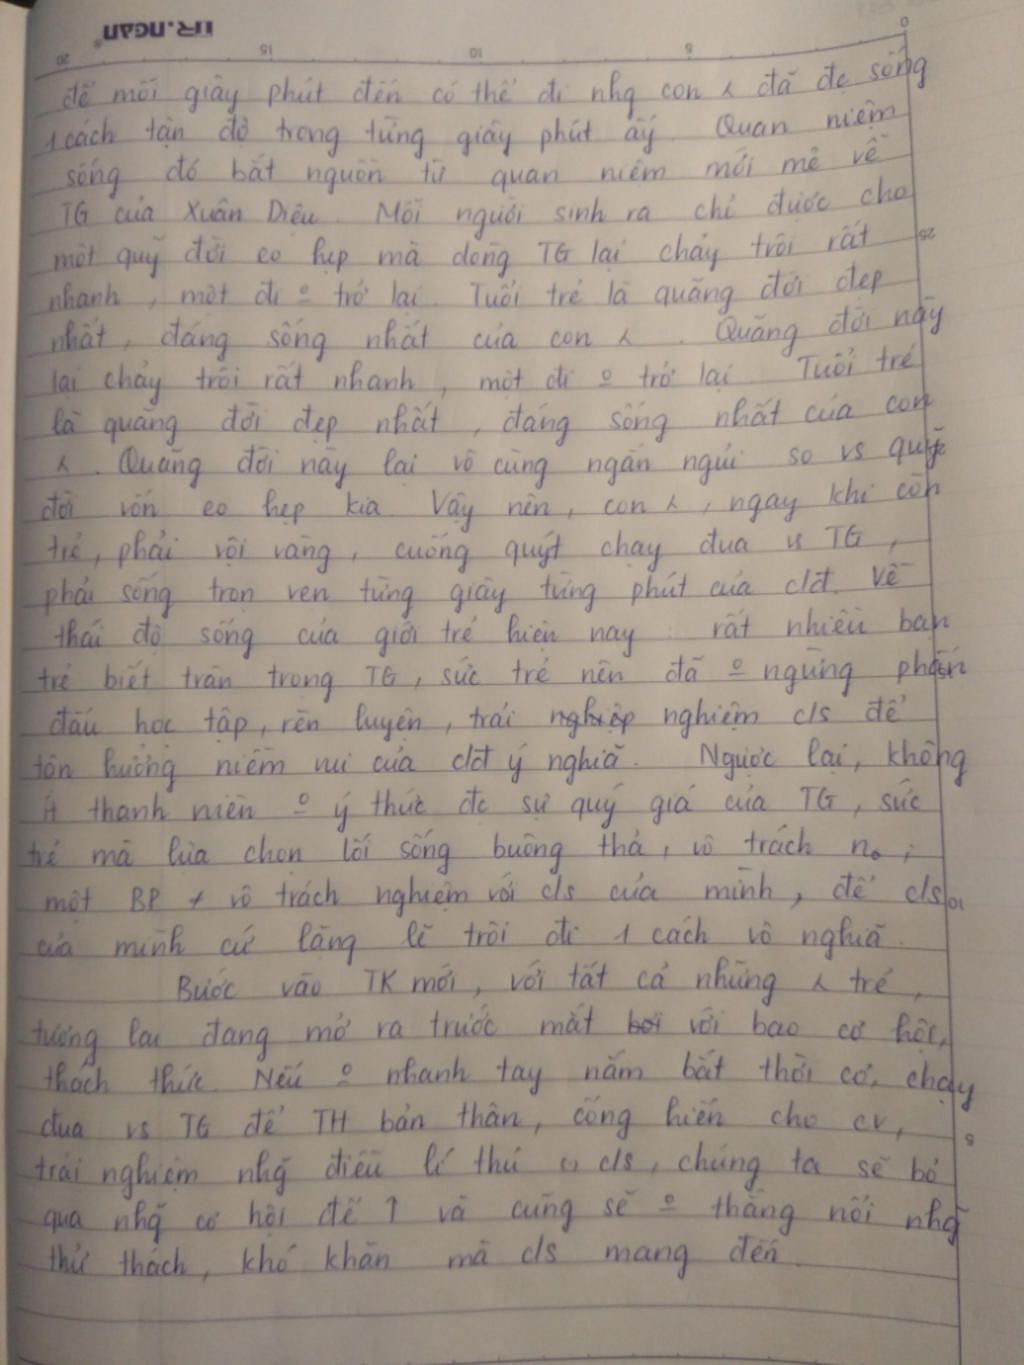 để mỗi giây phút đến có thể đi nhg con ʎ đã đc sống
1 cách tận độ trong từng giây phút ấy. Quan niệm
sống đó bắt nguồn từ quan niệm mới mẻ về
TG của Xuân Diệu. Mỗi người sinh ra chỉ được cho
một quỹ đời eo hẹp mà dòng TG lại chảy trôi rất
nhanh, một đi º trở lại. Tuổi trẻ là quãng đời đẹp
nhất, đáng sống nhất của con ʎ. Quãng đời này
lại chảy trôi rất nhanh, một đi º trở lại. Tuổi trẻ
là quãng đời đẹp nhất, đáng sống nhất của con
ʎ. Quãng đời này lại vô cùng ngắn ngủi so vs quỹ
đời vốn eo hẹp kia. Vậy nên, con ʎ, ngay khi còn
trẻ, phải vội vàng, cuống quýt chạy đua vs TG,
phải sống trọn vẹn từng giây từng phút của c/đ. Về
thái độ sống của giới trẻ hiện nay: rất nhiều bạn
trẻ biết trân trọng TG, sức trẻ nên đã º ngừng phấn
đấu học tập, rèn luyện, trải nghiệm c/s để
tận hưởng niềm vui của c/đ ý nghĩa. Ngược lại, không
ít thanh niên º ý thức đc sự quý giá của TG, sức
trẻ mà lựa chọn lối sống buông thả, vô trách nº;
một BP ≠ vô trách nghiệm với c/s của mình, để c/s
của mình cứ lặng lẽ trôi đi 1 cách vô nghĩa.
Bước vào TK mới, với tất cả những ʎ trẻ,
tương lai đang mở ra trước mắt với bao cơ hội,
thách thức. Nếu º nhanh tay nắm bắt thời cơ, chạy
đua vs TG để TH bản thân, cống hiến cho cv,
trải nghiệm nhg̃ điều lí thú c/s, chúng ta sẽ bỏ
qua nhg̃ cơ hội để ↑ và cũng sẽ º thắng nổi nhg̃
thử thách, khó khăn mà c/s mang đến.